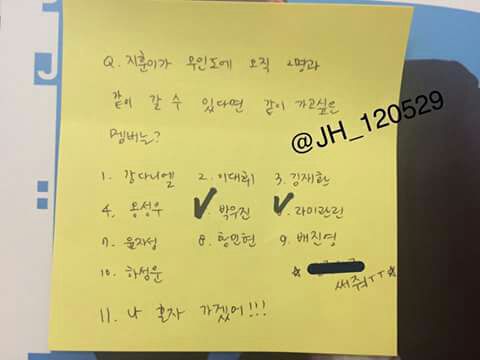 Q. 지훈이가 무인도에 오직 2명과
같이 갈 수 있다면 같이 가고싶은
멤버는?
@JH_120529
1. 강다니엘 2. 이대휘 3. 김재환
4. 옹성우 ✓. 박우진 ✓. 라이관린
7. 윤지성 8. 황민현 9. 배진영
10. 하성운
☆ ☆
써줘ㅜㅜ
11. 나 혼자 가겠어!!!
J